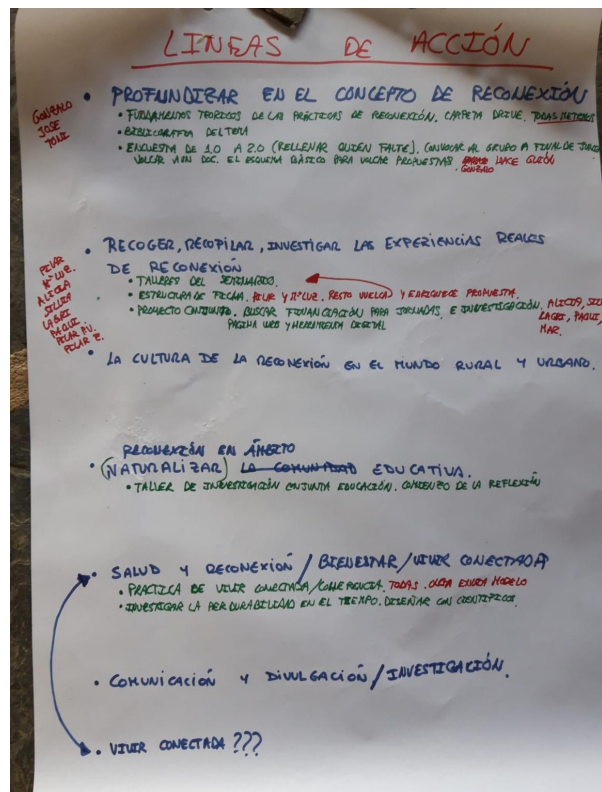 LINEAS DE ACCIÓN
GONZALO
JOSE
TONI
• PROFUNDIZAR EN EL CONCEPTO DE RECONEXIÓN
• FUNDAMENTOS TEORICOS DE LAS PRÁCTICAS DE RECONEXIÓN. CARPETA DRIVE. TODAS METEMOS
• BIBLIOGRAFIA DEL TEMA
• ENCUESTA DE 1.0 A 2.0 (RELLENAR QUIEN FALTE). CONVOCAR AL GRUPO A FINAL DE JUNIO
VOLCAR A UN DOC. EL ESQUEMA BÁSICO PARA VOLCAR PROPUESTAS HACE GUIÓN
GONZALO
PILAR
Mª LUZ.
ALICIA
SILVIA
LAGRI
PAQUI.
PILAR M.
PILAR Z.
• RECOGER, RECOPILAR, INVESTIGAR LAS EXPERIENCIAS REALES
DE RECONEXIÓN
• TALLERES DEL SEMINARIO.
• ESTRUCTURA DE FICHA. PILAR Y Mª LUZ. RESTO VUELCAN Y ENRIQUECE PROPUESTA.
• PROYECTO CONJUNTO. BUSCAR FINANCIACIÓN PARA JORNADAS, E INVESTIGACIÓN. ALICIA,
PÁGINA WEB Y HERRAMIENTA DIGITAL LAGRI, PAQUI,
MAR.
• LA CULTURA DE LA RECONEXIÓN EN EL MUNDO RURAL Y URBANO.
RECONEXIÓN EN ÁMBITO
• (NATURALIZAR) LA COMUNIDAD EDUCATIVA.
• TALLER DE INVESTIGACIÓN CONJUNTA EDUCACIÓN. COMIENZO DE LA REFLEXIÓN
• SALUD Y RECONEXIÓN / BIENESTAR / VIVIR CONECTADA
• PRACTICA DE VIVIR CONECTADA/COHERENCIA. TODAS. OLGA ENVIA MODELO
• INVESTIGAR LA PERDURABILIDAD EN EL TIEMPO. DISEÑAR CON CIENTIFICOS.
• COMUNICACIÓN Y DIVULGACIÓN / INVESTIGACIÓN.
• VIVIR CONECTADA ???